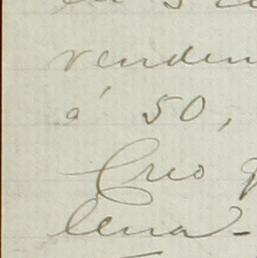 venden
á 50,
Creo q
lena-